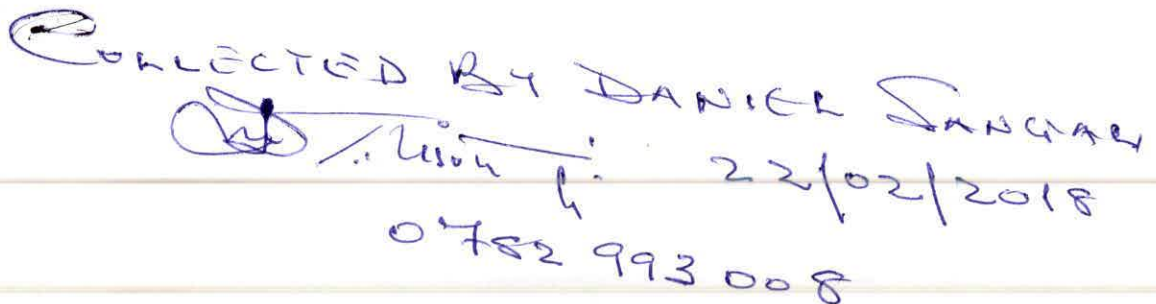 COLLECTED BY DANIEL
22/02/2018
0782 993 008